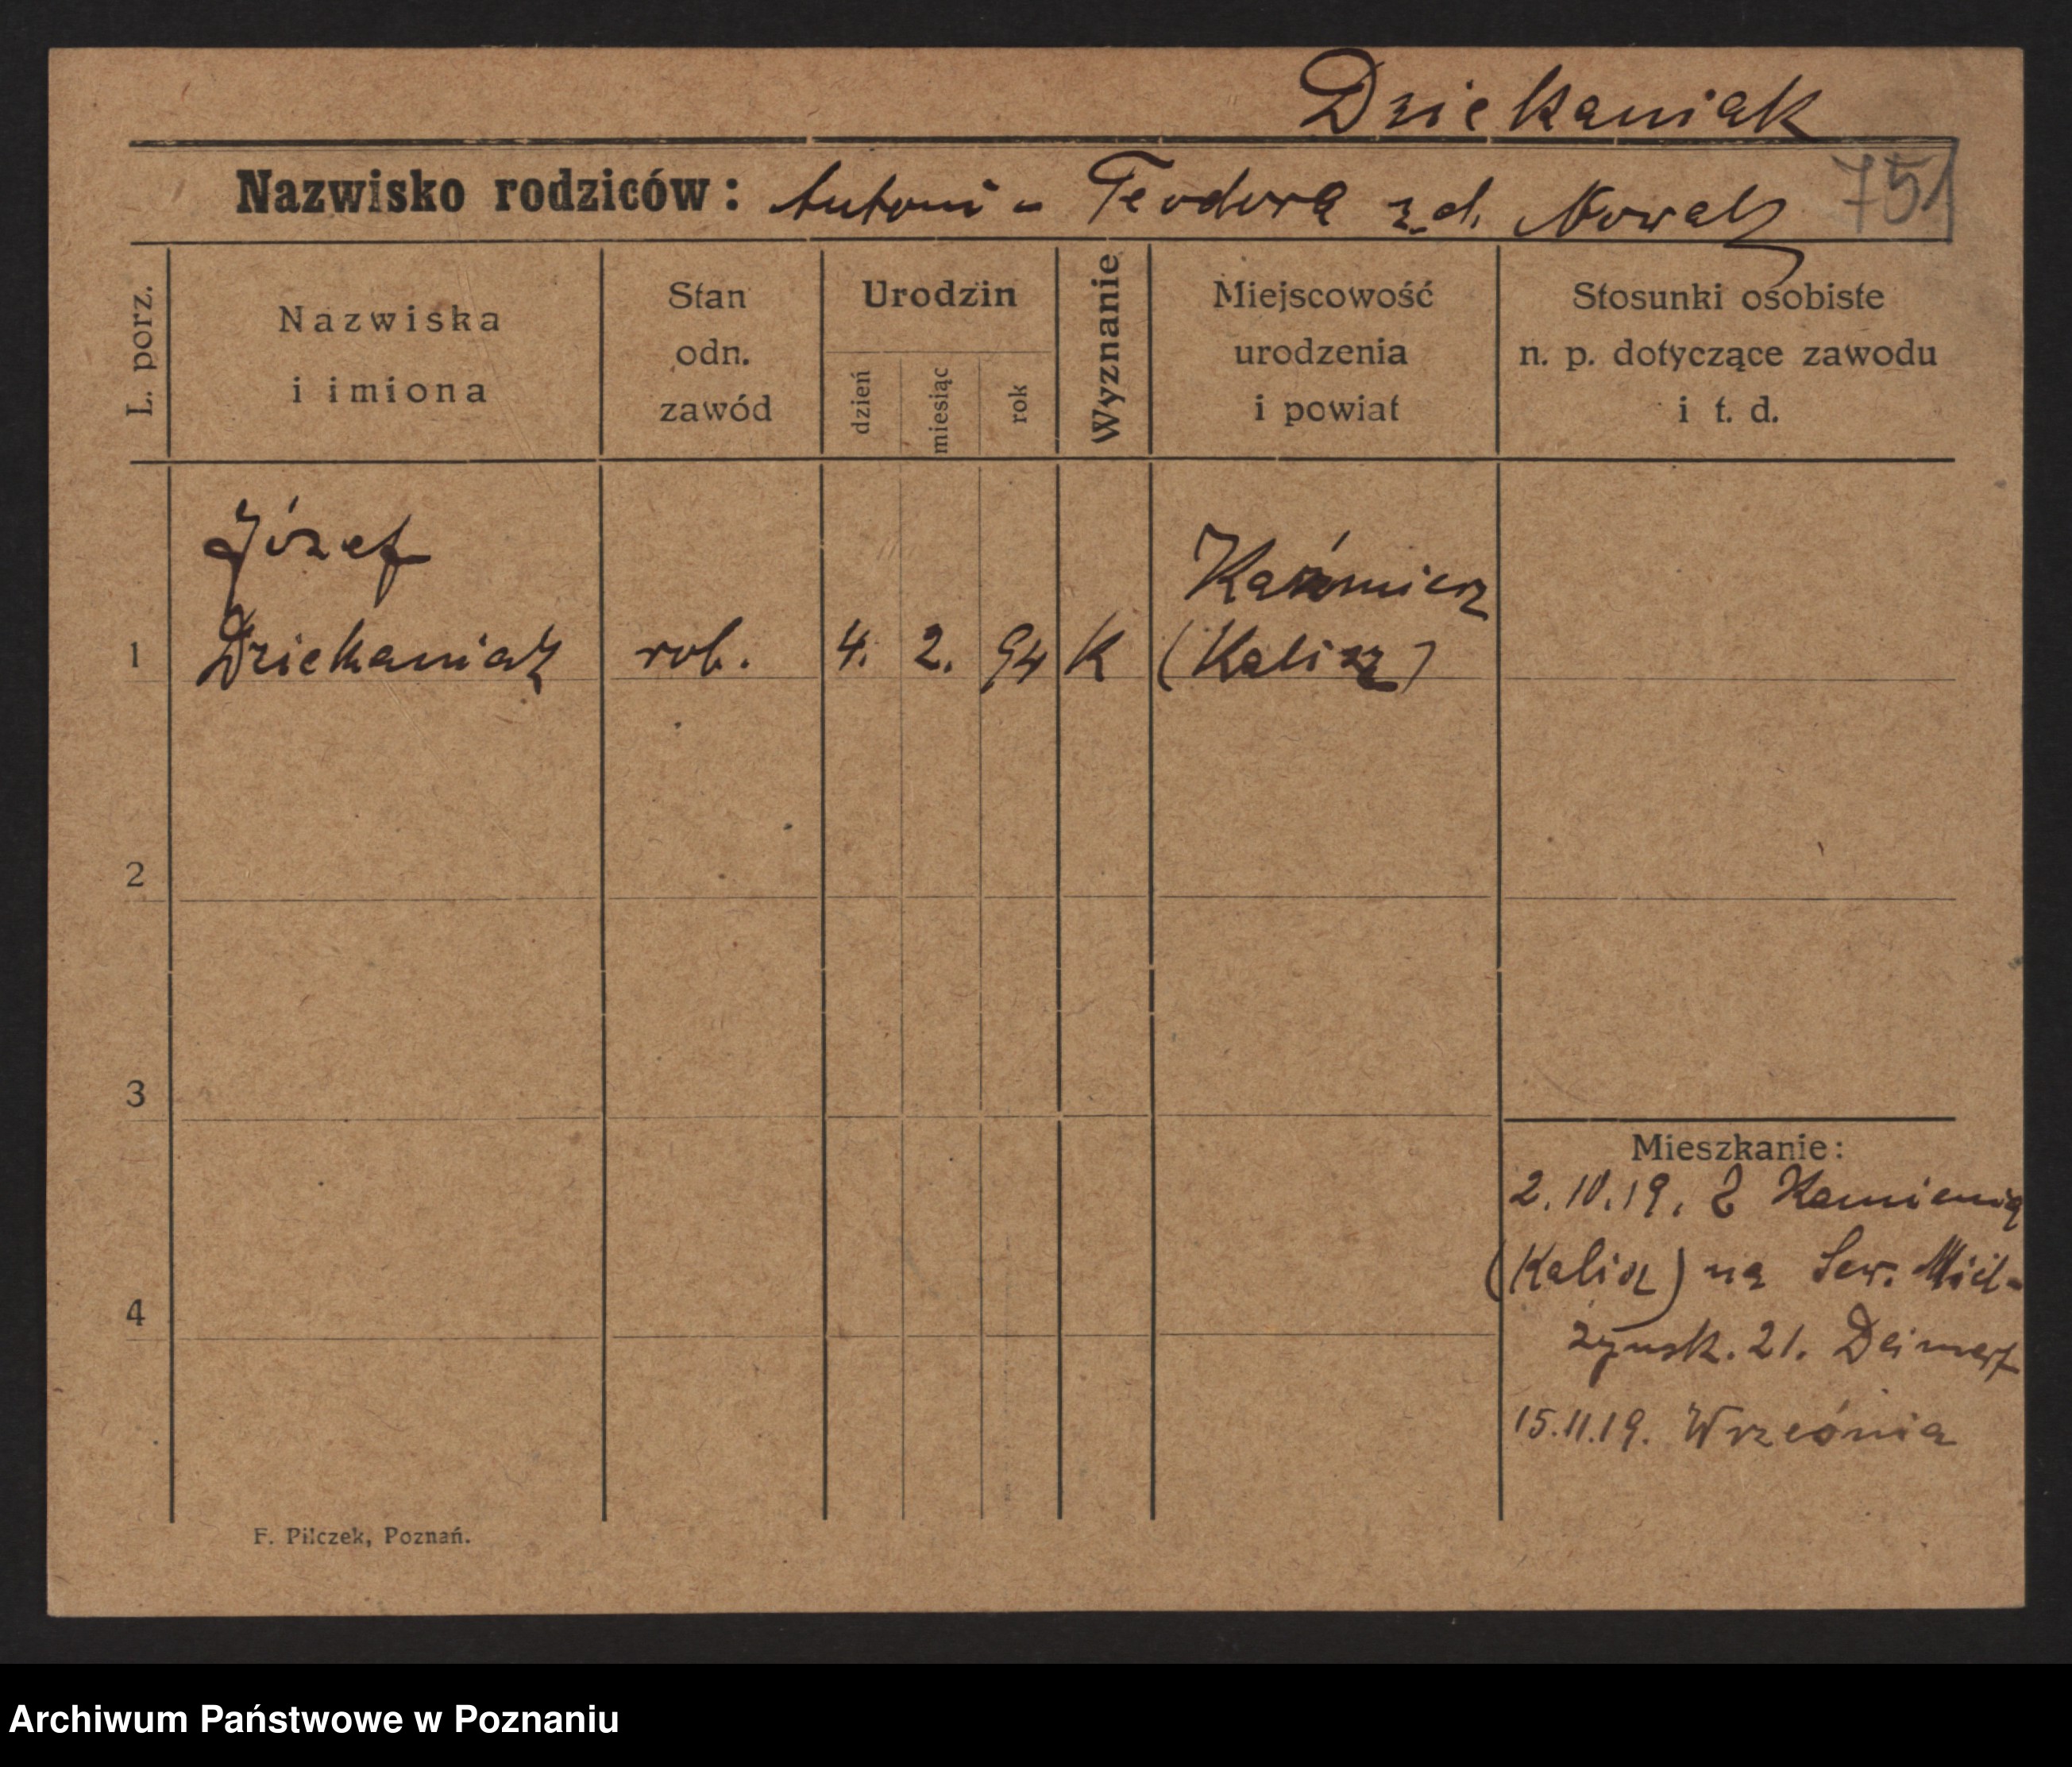 Dziekaniak
Nazwisko rodziców: Antoni - Teodora z d. Nowak
751
L. porz.
Nazwiska
i imiona
Stan
odn.
zawód
Urodzin
dzień
miesiąc
rok
Wyznanie
Miejscowość
urodzenia
i powiat
Stosunki osobiste
n. p. dotyczące zawodu
i t. d.
Józef
Kaźmierz
1 Dziekaniak rob. 4. 2. 94 K (Kalisz)
2
3
Mieszkanie:
2.10.19. Z Kamienia
(Kalisz) na Sew. Miel-
4
żyńsk. 21.
15.11.19. Września
F. Pilczek, Poznań.
Archiwum Państwowe w Poznaniu